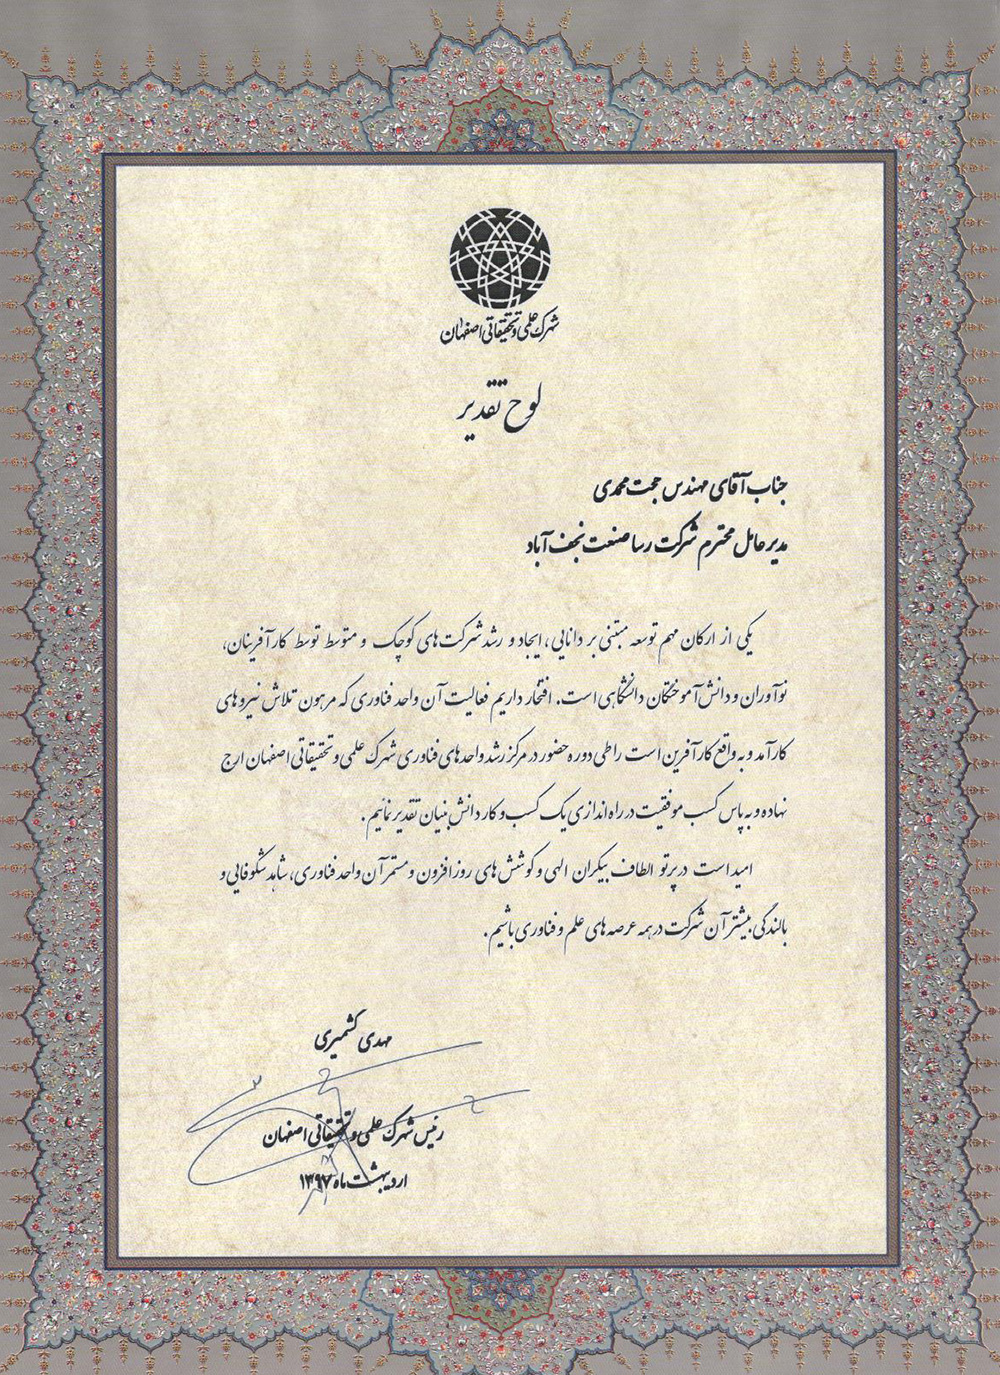 شهرک علمی و تحقیقاتی اصفهان
لوح تقدیر
جناب آقای مهندس حجت محمدی
مدیر عامل محترم شرکت رسا صنعت نجف آباد
یکی از ارکان مهم توسعه مبتنی بر دانایی، ایجاد و رشد شرکت‌های کوچک و متوسط توسط کارآفرینان،
نوآوران و دانش‌آموختگان دانشگاهی است. افتخار داریم فعالیت آن واحد فناوری که مرهون تلاش نیروهای
کارآمد و به واقع کارآفرین است را طی دوره حضور در مرکز رشد واحدهای فناوری شهرک علمی و تحقیقاتی اصفهان ارج
نهاده و به پاس کسب موفقیت در راه اندازی یک کسب و کار دانش بنیان تقدیر نمائیم.
امید است در پرتو الطاف بیکران الهی و کوشش‌های روزافزون و مستمر آن واحد فناوری، شاهد شکوفایی و
بالندگی بیشتر آن شرکت در همه عرصه‌های علم و فناوری باشیم.
مهدی کشمیری
رئیس شهرک علمی و تحقیقاتی اصفهان
اردیبهشت ماه ۱۳۹۷